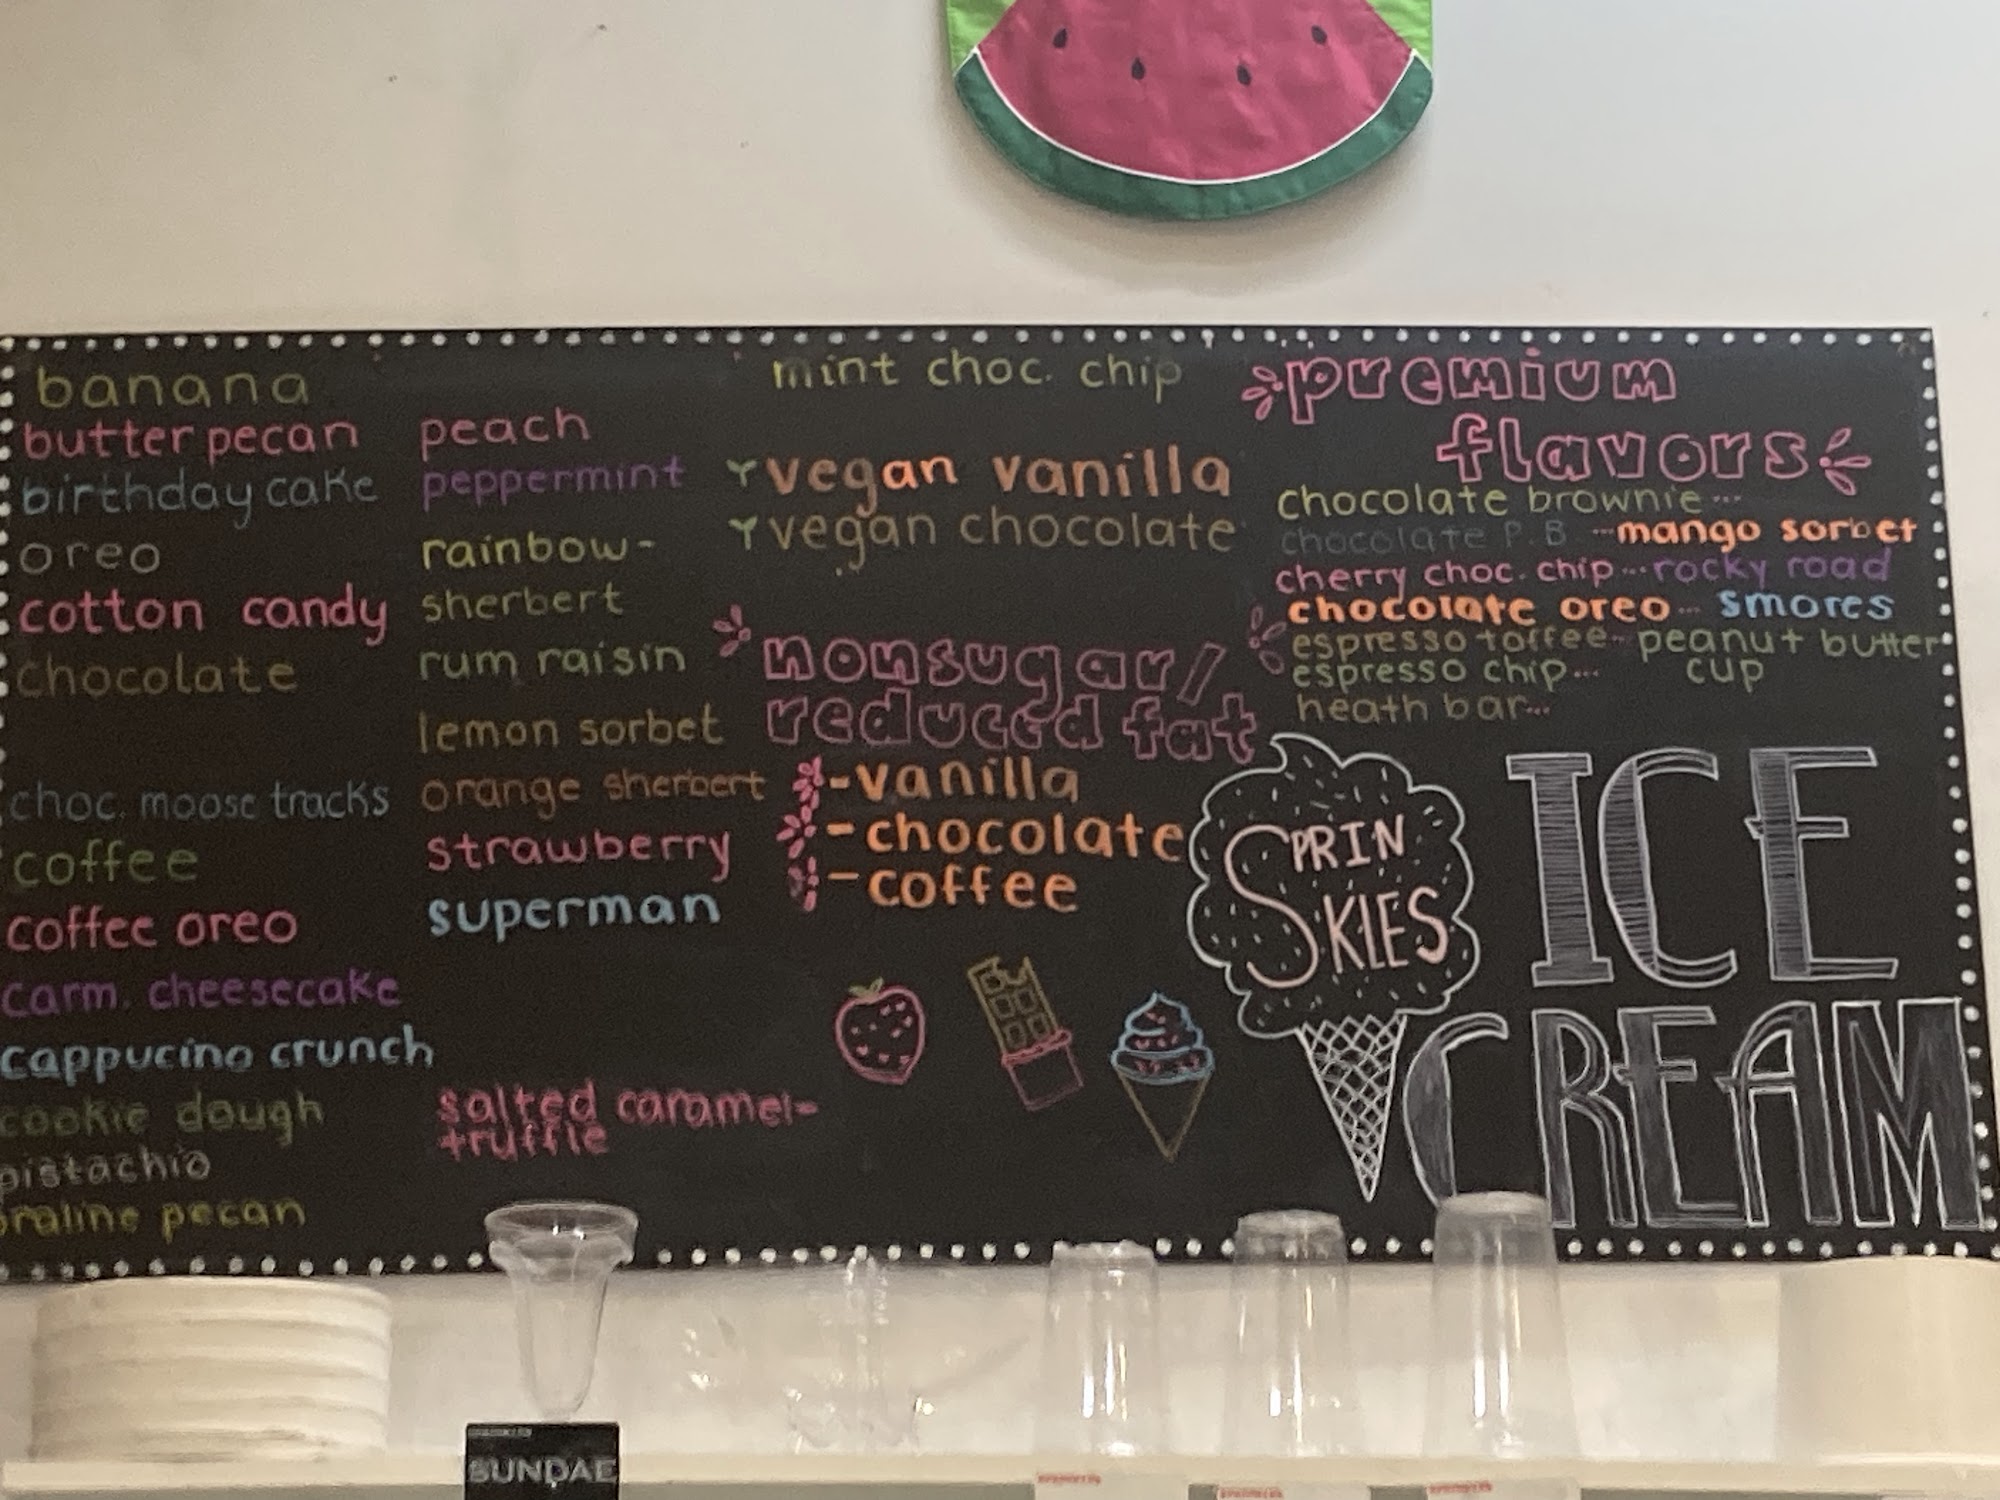 banana
butter pecan
birthday cake
oreo
cotton candy
chocolate
choc. moose tracks
coffee
coffee oreo
carm. cheesecake
cappucino crunch
cookie dough
pistachio
praline pecan
peach
peppermint
rainbow-
sherbert
rum raisin
lemon sorbet
orange sherbert
strawberry
superman
salted caramel-
truffle
mint choc. chip
vegan vanilla
vegan chocolate
nonsugar/
reduced fat
-vanilla
-chocolate
-coffee
premium
flavors
chocolate brownie...
chocolate P.B ...mango sorbet
cherry choc. chip...rocky road
chocolate oreo... smores
espresso toffee...peanut butter
espresso chip... cup
heath bar...
SPRIN
KIES
ICE
CREAM
SUNDAE